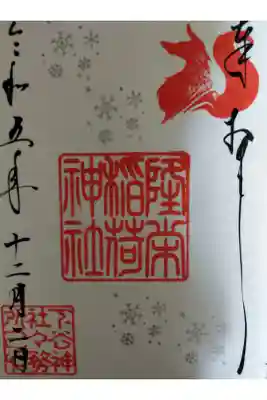 奉拝
隆栄
稲荷
神社
令和五年十二月二日
下谷神
社社務